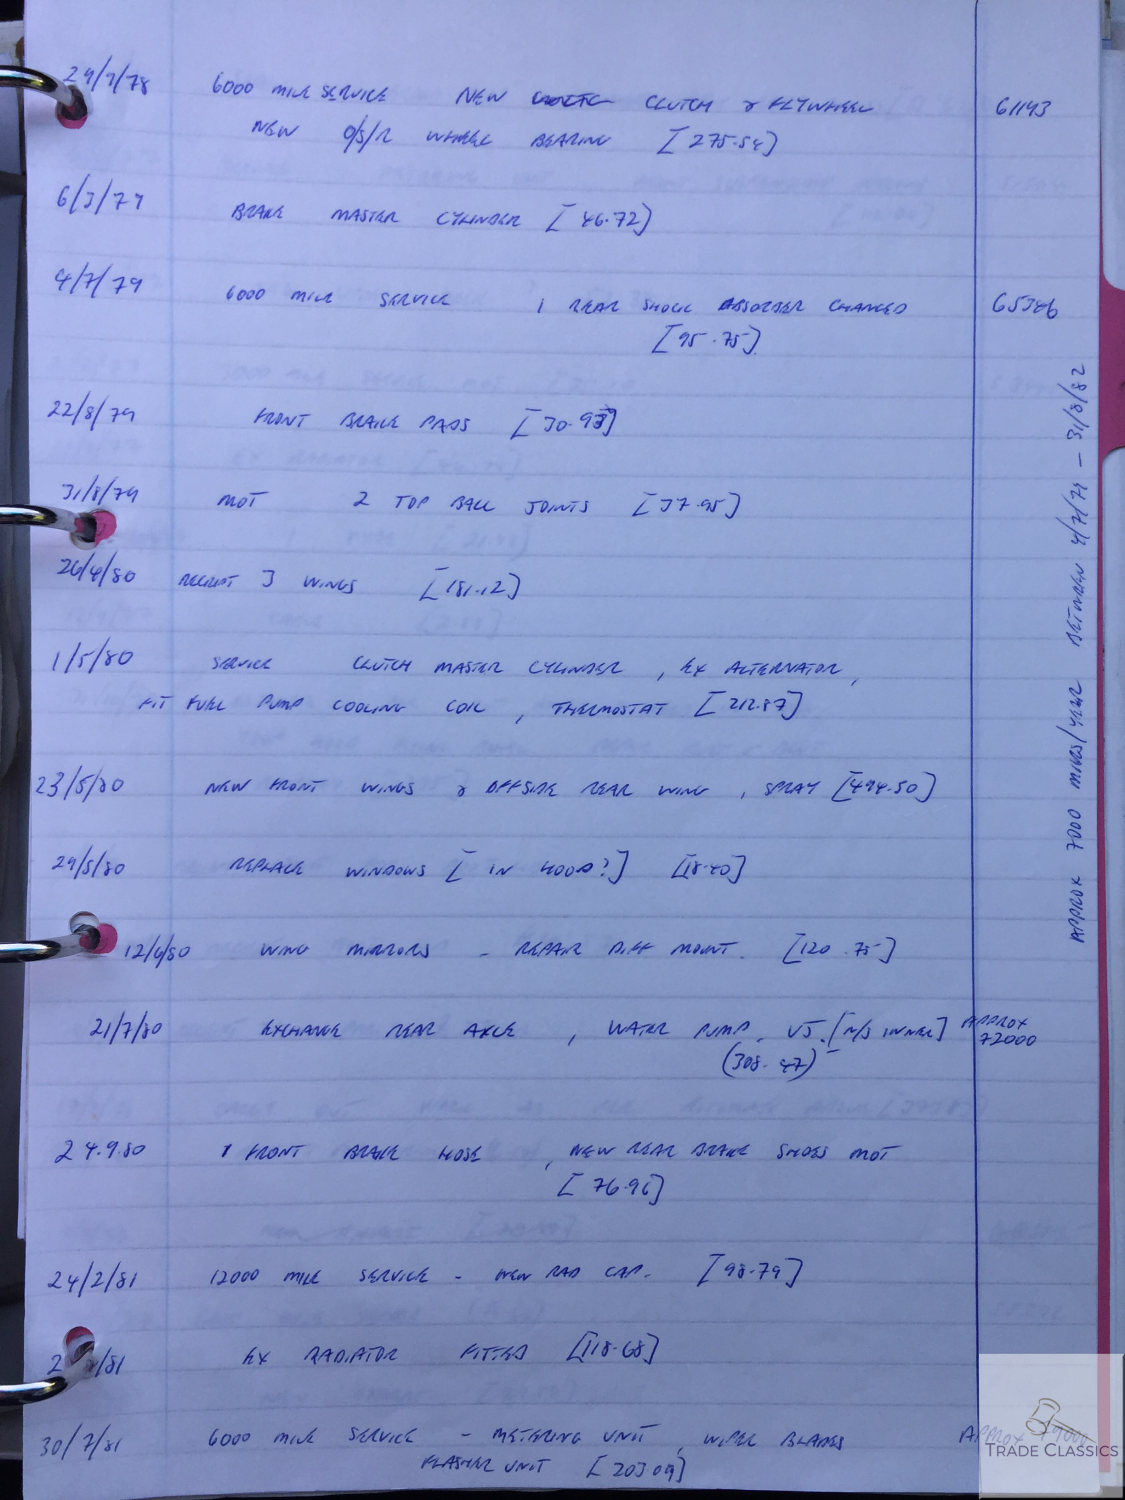 29/7/78 6000 MILE SERVICE NEW CLUTCH & FLYWHEEL 61143
NEW O/S/R WHEEL BEARING [275.54]
6/3/79 BRAKE MASTER CYLINDER [46.72]
4/7/79 6000 MILE SERVICE 1 REAR SHOCK ABSORBER CHANGED 65386
[95.75]
22/8/79 FRONT BRAKE PADS [30.93]
31/8/79 MOT 2 TOP BALL JOINTS [37.95]
26/4/80 RECEIPT 3 WINGS [181.12]
1/5/80 SERVICE CLUTCH MASTER CYLINDER, EX ALTERNATOR,
FIT FUEL PUMP COOLING COIL, THERMOSTAT [212.87]
23/5/80 NEW FRONT WINGS & OFFSIDE REAR WING, SPRAY [494.50]
29/5/80 REPLACE WINDOWS [IN HOOD?] [18.40]
12/6/80 WING MIRRORS - REPAIR DIFF MOUNT. [120.75]
21/7/80 EXCHANGE REAR AXLE, WATER PUMP, UJ. [N/S INNER] APPROX 72000
(308.47)
24.9.80 1 FRONT BRAKE HOSE, NEW REAR BRAKE SHOES MOT
[76.96]
24/2/81 12000 MILE SERVICE - NEW RAD CAP. [98.79]
/81 EX RADIATOR FITTED [118.68]
30/7/81 6000 MILE SERVICE - METERING UNIT, WIPER BLADES APPROX
FLASHER UNIT [203.09]
APPROX 7000 MILES/YEAR BETWEEN 4/7/79 - 31/8/82
TRADE CLASSICS